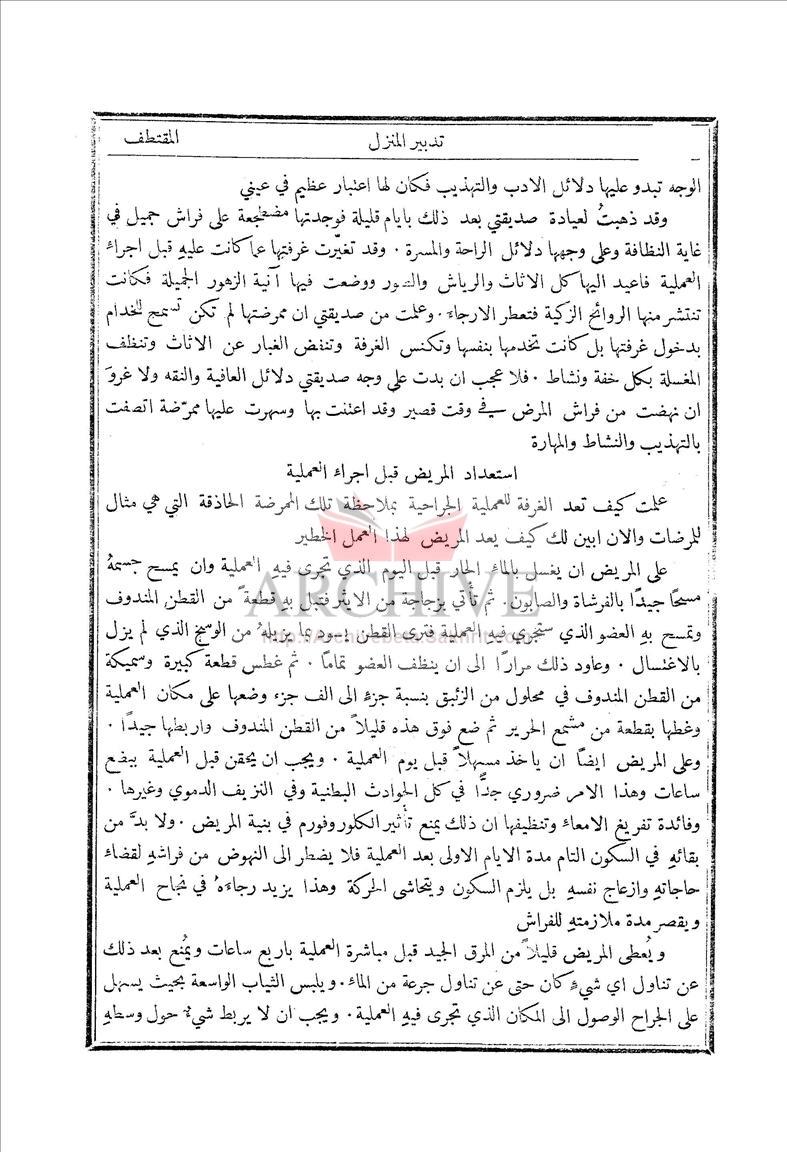 تدبير المنزل
المقتطف
الوجه تبدو عليها دلائل الادب والتهذيب فكان لها اعتبار عظيم في عيني
وقد ذهبتُ لعيادة صديقتي بعد ذلك بايام قليلة فوجدتها مضطجعة على فراش جميل في
غاية النظافة وعلى وجهها دلائل الراحة والمسرة . وقد تغيّرت غرفتها عما كانت عليهِ قبل اجراء
العملية فاعيد اليها كل الاثاث والرياش والستور ووضعت فيها آنية الزهور الجميلة فكانت
تنتشر منها الروائح الزكية فتعطر الارجاء . وعلمت من صديقتي ان ممرضتها لم تكن تسمح للخدام
بدخول غرفتها بل كانت تخدمها بنفسها وتكنس الغرفة وتنفض الغبار عن الاثاث وتنظف
المغسلة بكل خفة ونشاط . فلا عجب ان بدت على وجه صديقتي دلائل العافية والنقه ولا غروَ
ان نهضت من فراش المرض في وقت قصير وقد اعتنت بها وسهرت عليها ممرّضة اتصفت
بالتهذيب والنشاط والمهارة
استعداد المريض قبل اجراء العملية
علمت كيف تعد الغرفة للعملية الجراحية بملاحظة تلك الممرضة الحاذقة التي هي مثال
للمرضات والان ابين لك كيف يعد المريض لهذا العمل الخطير
على المريض ان يغسل بالماء الحار قبل اليوم الذي تجرى فيهِ العملية وان يمسح جسمهُ
مسحًا جيدًا بالفرشاة والصابون . ثم تأتي بزجاجة من الايثر فتبل بهِ قطعةً من القطن المندوف
وتمسح بهِ العضو الذي ستجري فيهِ العملية فترى القطن يسود بما يزيلهُ من الوسخ الذي لم يزل
بالاغتسال . وعاود ذلك مرارًا الى ان ينظف العضو تمامًا . ثم غطس قطعة كبيرة وسميكة
من القطن المندوف في محلول من الزئبق بنسبة جزءٍ الى الف جزء وضعها على مكان العملية
وغطها بقطعة من مشمع الحرير ثم ضع فوق هذه قليلاً من القطن المندوف واربطها جيدًا .
وعلى المريض ايضًا ان ياخذ مسهلاً قبل يوم العملية . ويجب ان يحقن قبل العملية ببضع
ساعات وهذا الامر ضروري جدًّا في كل الحوادث البطنية وفي النزيف الدموي وغيرها .
وفائدة تفريغ الامعاء وتنظيفها ان ذلك يمنع تأثير الكلوروفورم في بنية المريض . ولا بدَّ من
بقائهِ في السكون التام مدة الايام الاولى بعد العملية فلا يضطر الى النهوض من فراشهِ لقضاء
حاجاتهِ وازعاج نفسهِ بل يلزم السكون ويتحاشى الحركة وهذا يزيد رجاءهُ في نجاح العملية
ويقصر مدة ملازمتهِ للفراش
ويُعطى المريض قليلاً من المرق الجيد قبل مباشرة العملية باربع ساعات ويُمنع بعد ذلك
عن تناول اي شيءٍ كان حتى عن تناول جرعة من الماء . ويلبس الثياب الواسعة بحيث يسهل
على الجراح الوصول الى المكان الذي تجرى فيهِ العملية . ويجب ان لا يربط شيءٌ حول وسطهِ
ARCHIVE